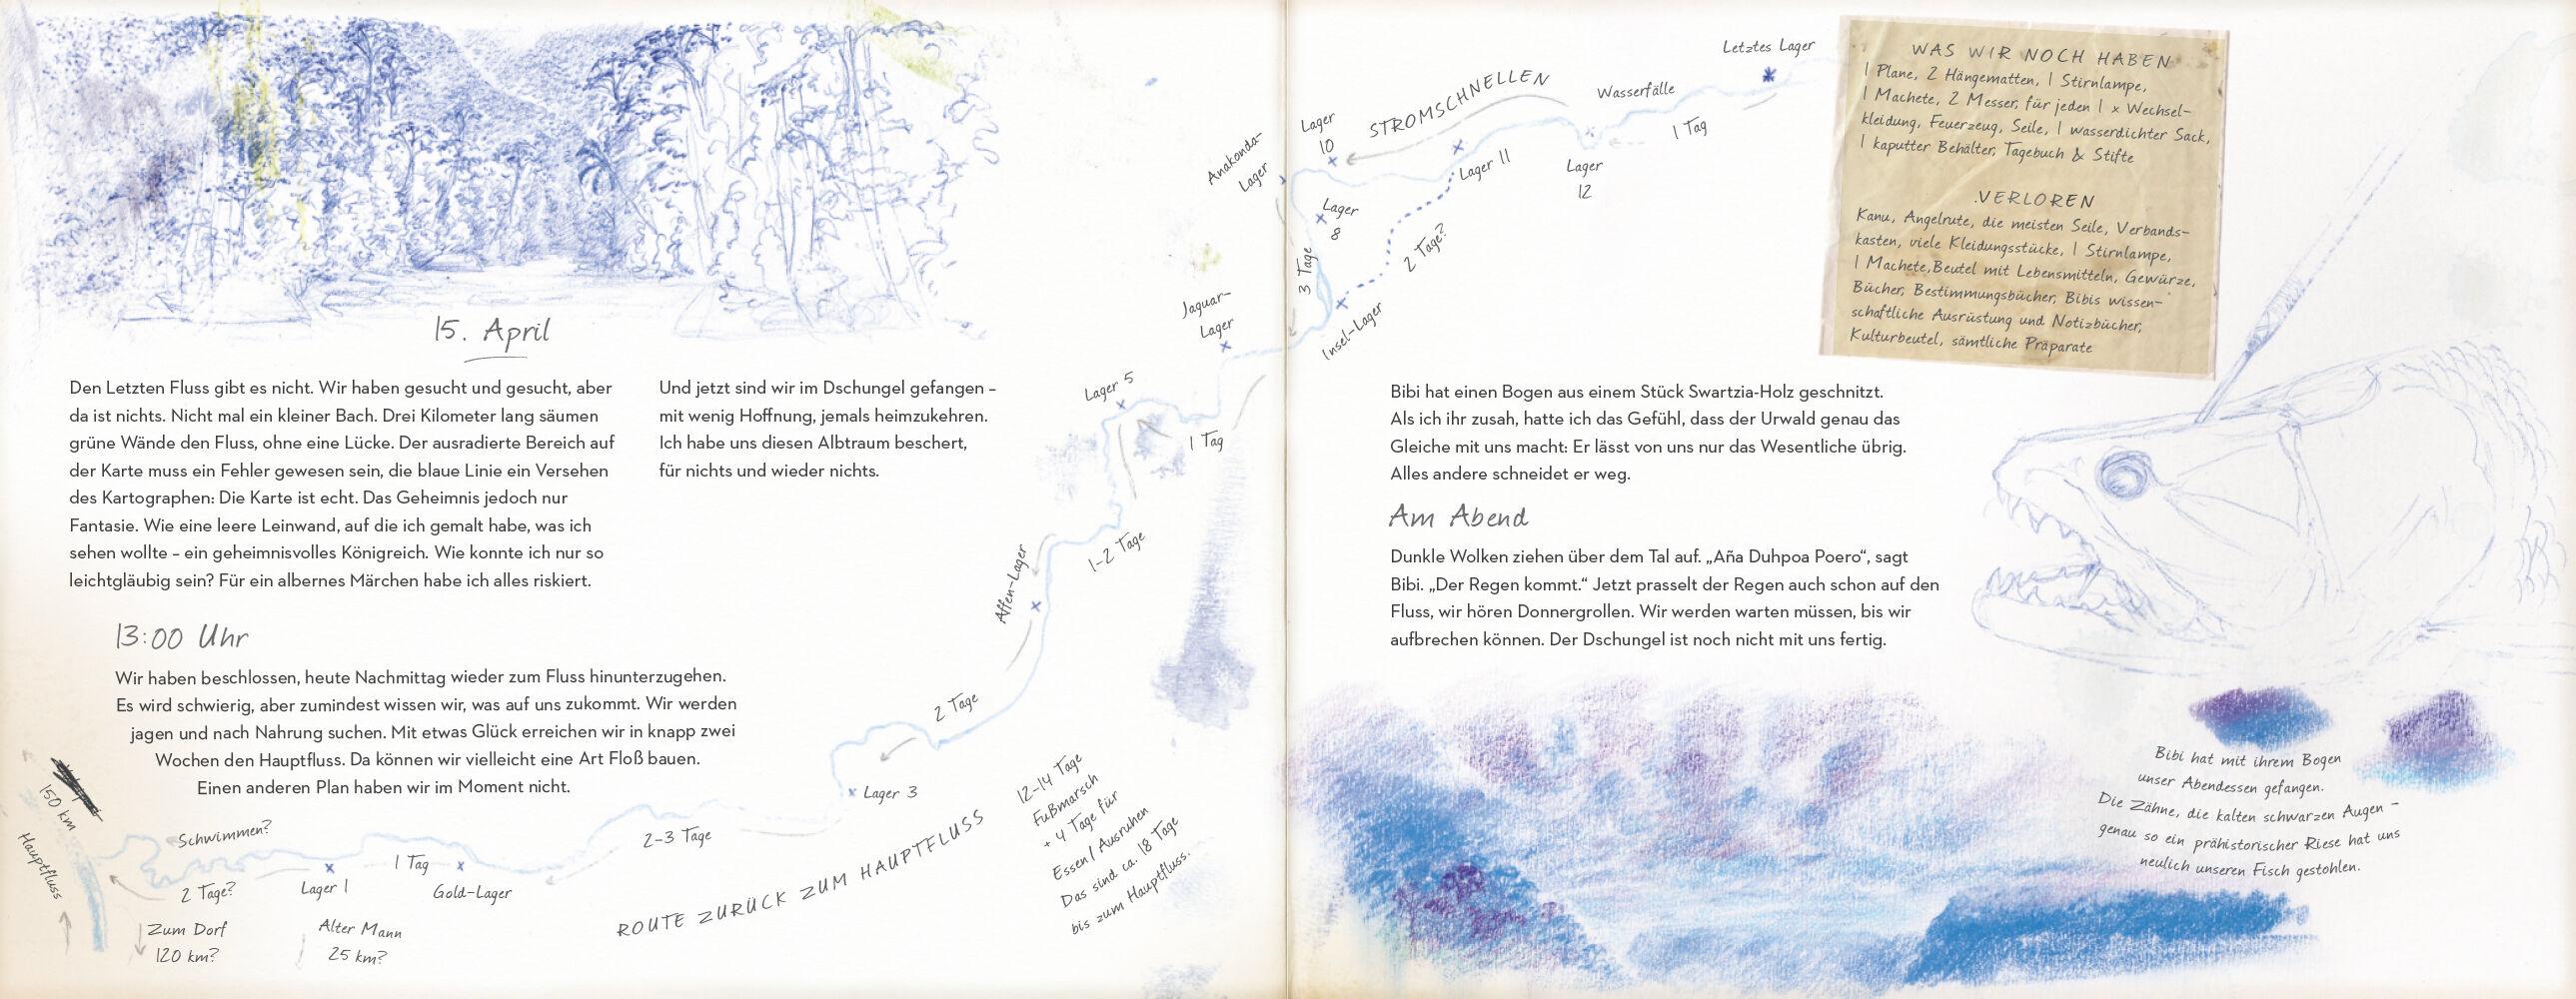 15. April
Den Letzten Fluss gibt es nicht. Wir haben gesucht und gesucht, aber
da ist nichts. Nicht mal ein kleiner Bach. Drei Kilometer lang säumen
grüne Wände den Fluss, ohne eine Lücke. Der ausradierte Bereich auf
der Karte muss ein Fehler gewesen sein, die blaue Linie ein Versehen
des Kartographen: Die Karte ist echt. Das Geheimnis jedoch nur
Fantasie. Wie eine leere Leinwand, auf die ich gemalt habe, was ich
sehen wollte – ein geheimnisvolles Königreich. Wie konnte ich nur so
leichtgläubig sein? Für ein albernes Märchen habe ich alles riskiert.
Und jetzt sind wir im Dschungel gefangen –
mit wenig Hoffnung, jemals heimzukehren.
Ich habe uns diesen Albtraum beschert,
für nichts und wieder nichts.
13:00 Uhr
Wir haben beschlossen, heute Nachmittag wieder zum Fluss hinunterzugehen.
Es wird schwierig, aber zumindest wissen wir, was auf uns zukommt. Wir werden
jagen und nach Nahrung suchen. Mit etwas Glück erreichen wir in knapp zwei
Wochen den Hauptfluss. Da können wir vielleicht eine Art Floß bauen.
Einen anderen Plan haben wir im Moment nicht.
150 km
Hauptfluss
Schwimmen?
2 Tage?
Zum Dorf
120 km?
Lager 1
Alter Mann
25 km?
1 Tag
Gold-Lager
2-3 Tage
Lager 3
2 Tage
Affen-Lager
1-2 Tage
Lager 5
1 Tag
Jaguar-
Lager
Anakonda-
Lager
ROUTE ZURÜCK ZUM HAUPTFLUSS
12-14 Tage
Fußmarsch
+ 4 Tage für
Essen / Ausruhen
Das sind ca. 18 Tage
bis zum Hauptfluss.
Insel-Lager
3 Tage
2 Tage?
Lager
8
Lager
10
STROMSCHNELLEN
Lager 11
Wasserfälle
Lager
12
1 Tag
Letztes Lager
WAS WIR NOCH HABEN
1 Plane, 2 Hängematten, 1 Stirnlampe,
1 Machete, 2 Messer, für jeden 1 x Wechsel-
kleidung, Feuerzeug, Seile, 1 wasserdichter Sack,
1 kaputter Behälter, Tagebuch & Stifte
VERLOREN
Kanu, Angelrute, die meisten Seile, Verbands-
kasten, viele Kleidungsstücke, 1 Stirnlampe,
1 Machete, Beutel mit Lebensmitteln, Gewürze,
Bücher, Bestimmungsbücher, Bibis wissen-
schaftliche Ausrüstung und Notizbücher,
Kulturbeutel, sämtliche Präparate
Bibi hat einen Bogen aus einem Stück Swartzia-Holz geschnitzt.
Als ich ihr zusah, hatte ich das Gefühl, dass der Urwald genau das
Gleiche mit uns macht: Er lässt von uns nur das Wesentliche übrig.
Alles andere schneidet er weg.
Am Abend
Dunkle Wolken ziehen über dem Tal auf. „Aña Duhpoa Poero“, sagt
Bibi. „Der Regen kommt.“ Jetzt prasselt der Regen auch schon auf den
Fluss, wir hören Donnergrollen. Wir werden warten müssen, bis wir
aufbrechen können. Der Dschungel ist noch nicht mit uns fertig.
Bibi hat mit ihrem Bogen
unser Abendessen gefangen.
Die Zähne, die kalten schwarzen Augen –
genau so ein prähistorischer Riese hat uns
neulich unseren Fisch gestohlen.